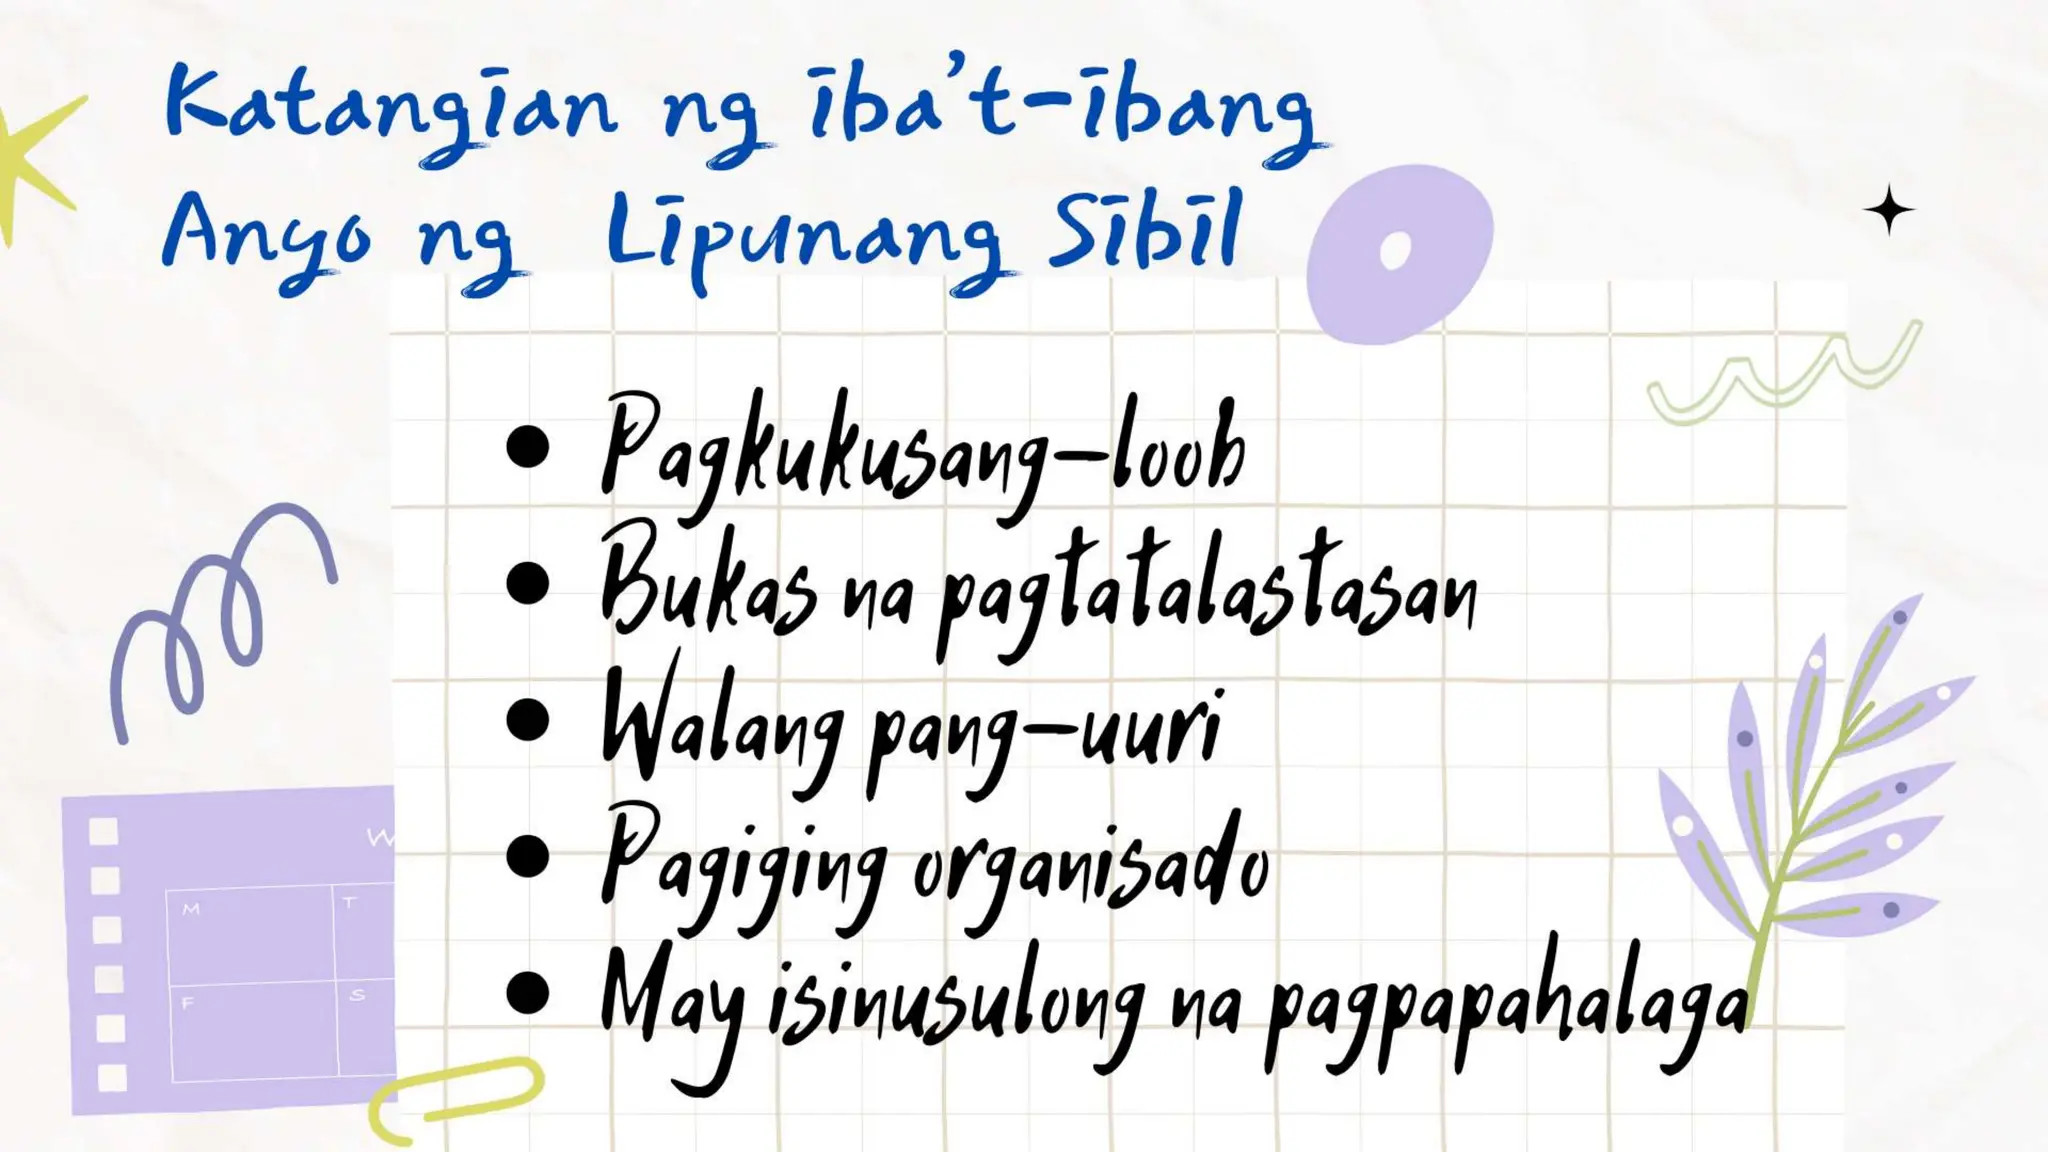 Katangian ng iba't-ibang
Anyo ng Lipunang Sibil
• Pagkukusang-loob
• Bukas na pagtatalastasan
• Walang pang-uuri
• Pagiging organisado
• May isinusulong na pagpapahalaga
W
M T
F S